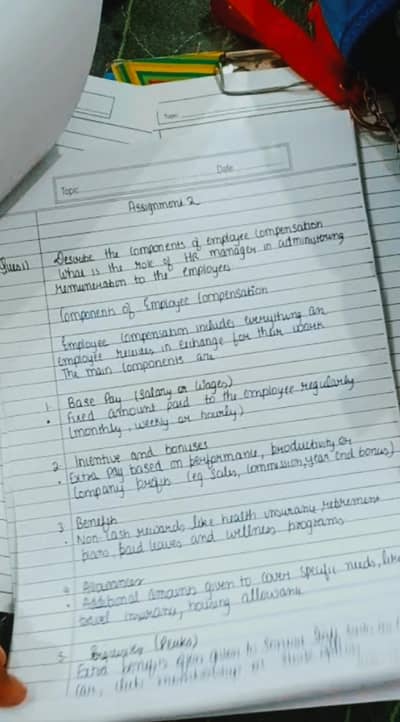 Topic
Date
Topic
Assignment 2
Ques 1) Describe the components of employee compensation
What is the role of HR manager in administering
remuneration to the employees
Components of Employee Compensation
Employee compensation includes everything an
employee receives in exchange for their work
The main components are
1. Base Pay (Salary or Wages)
• Fixed amount paid to the employee regularly
(monthly, weekly or hourly)
2. Incentive and bonuses
• Extra pay based on performance, productivity or
company profits (eg Sales, commission, year end bonus)
3. Benefits
• Non-cash rewards like health insurance, retirement
plans, paid leaves and wellness programs
4. Allowances
• Additional amounts given to cover specific needs, like
travel insurance, housing allowance
5. (Perks)
Extra benefits often given to
car, club